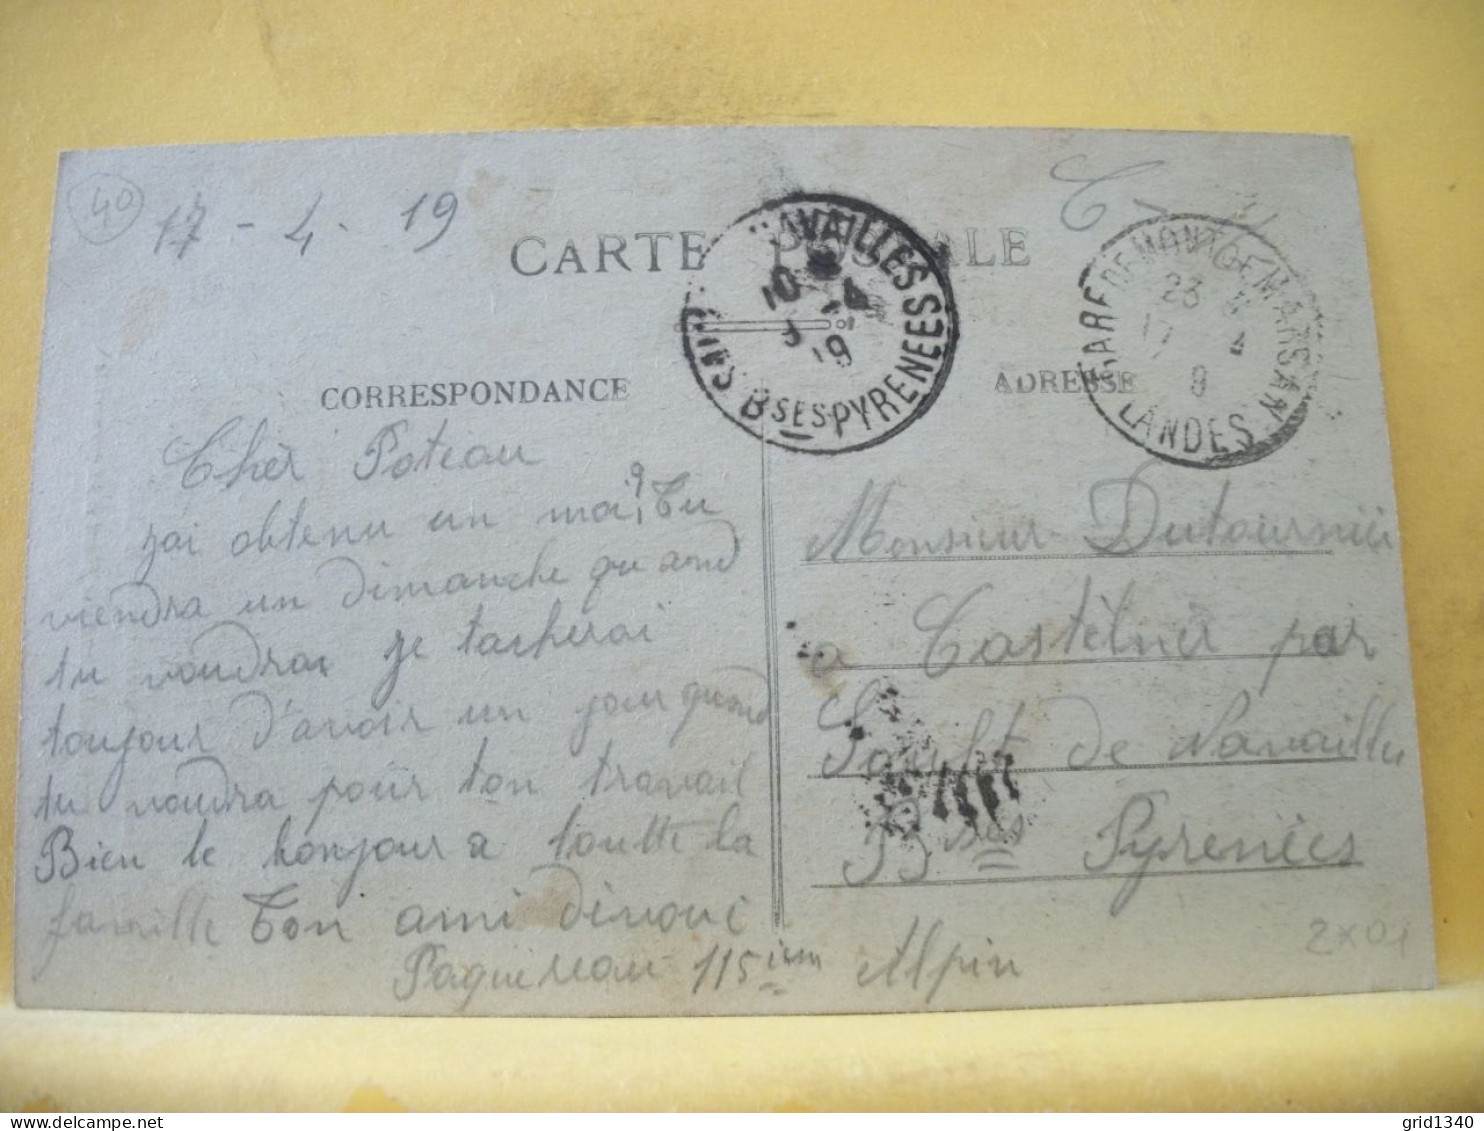 40
17 - 4 - 19
CARTE POSTALE
NAVAILLES
10 4
19
BSES PYRENEES
GARE DE MONT DE MARSAN
23
17 4
LANDES
CORRESPONDANCE
ADRESSE
Cher Poteau
jai obtenu un moi, Tu
viendra un dimanche quand
tu voudrai je tacherai
toujour d'avoir un jour quand
tu voudra pour ton travail
Bien le bonjour a toutte la
famille Ton ami
115 Alpin
Monsieur
a par
Sault de Navailles
Bses Pyrenèes
2x01
grid1340